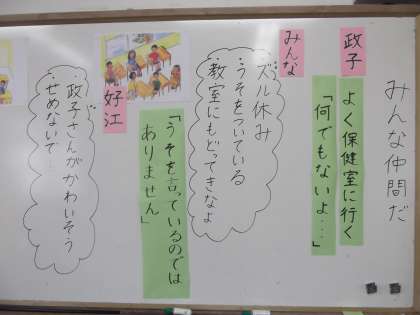 みんな仲間だ
政子
よく保健室に行く
「何でもないよ…」
みんな
・ズル休み
・うそをついている
・教室にもどってきなよ
「うそを言っているのでは
ありません」
好江
・政子さんがかわいそう
・せめないで…